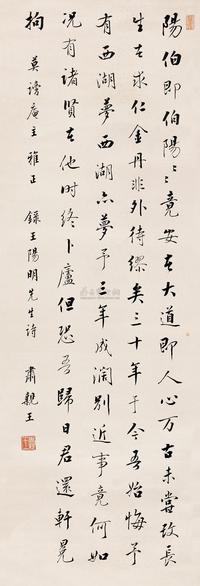 陽伯即伯陽〻〻竟安在大道即人心万古未嘗改長
生在求仁金丹非外待繆矣三十年于今吾始悔予
有西湖夢西湖亦夢予三年成闊別近事竟何如
况有諸賢在他時終卜廬但恐吾歸日君還軒冕
拘
莫謗庵主雅正 錄王陽明先生詩 肅親王